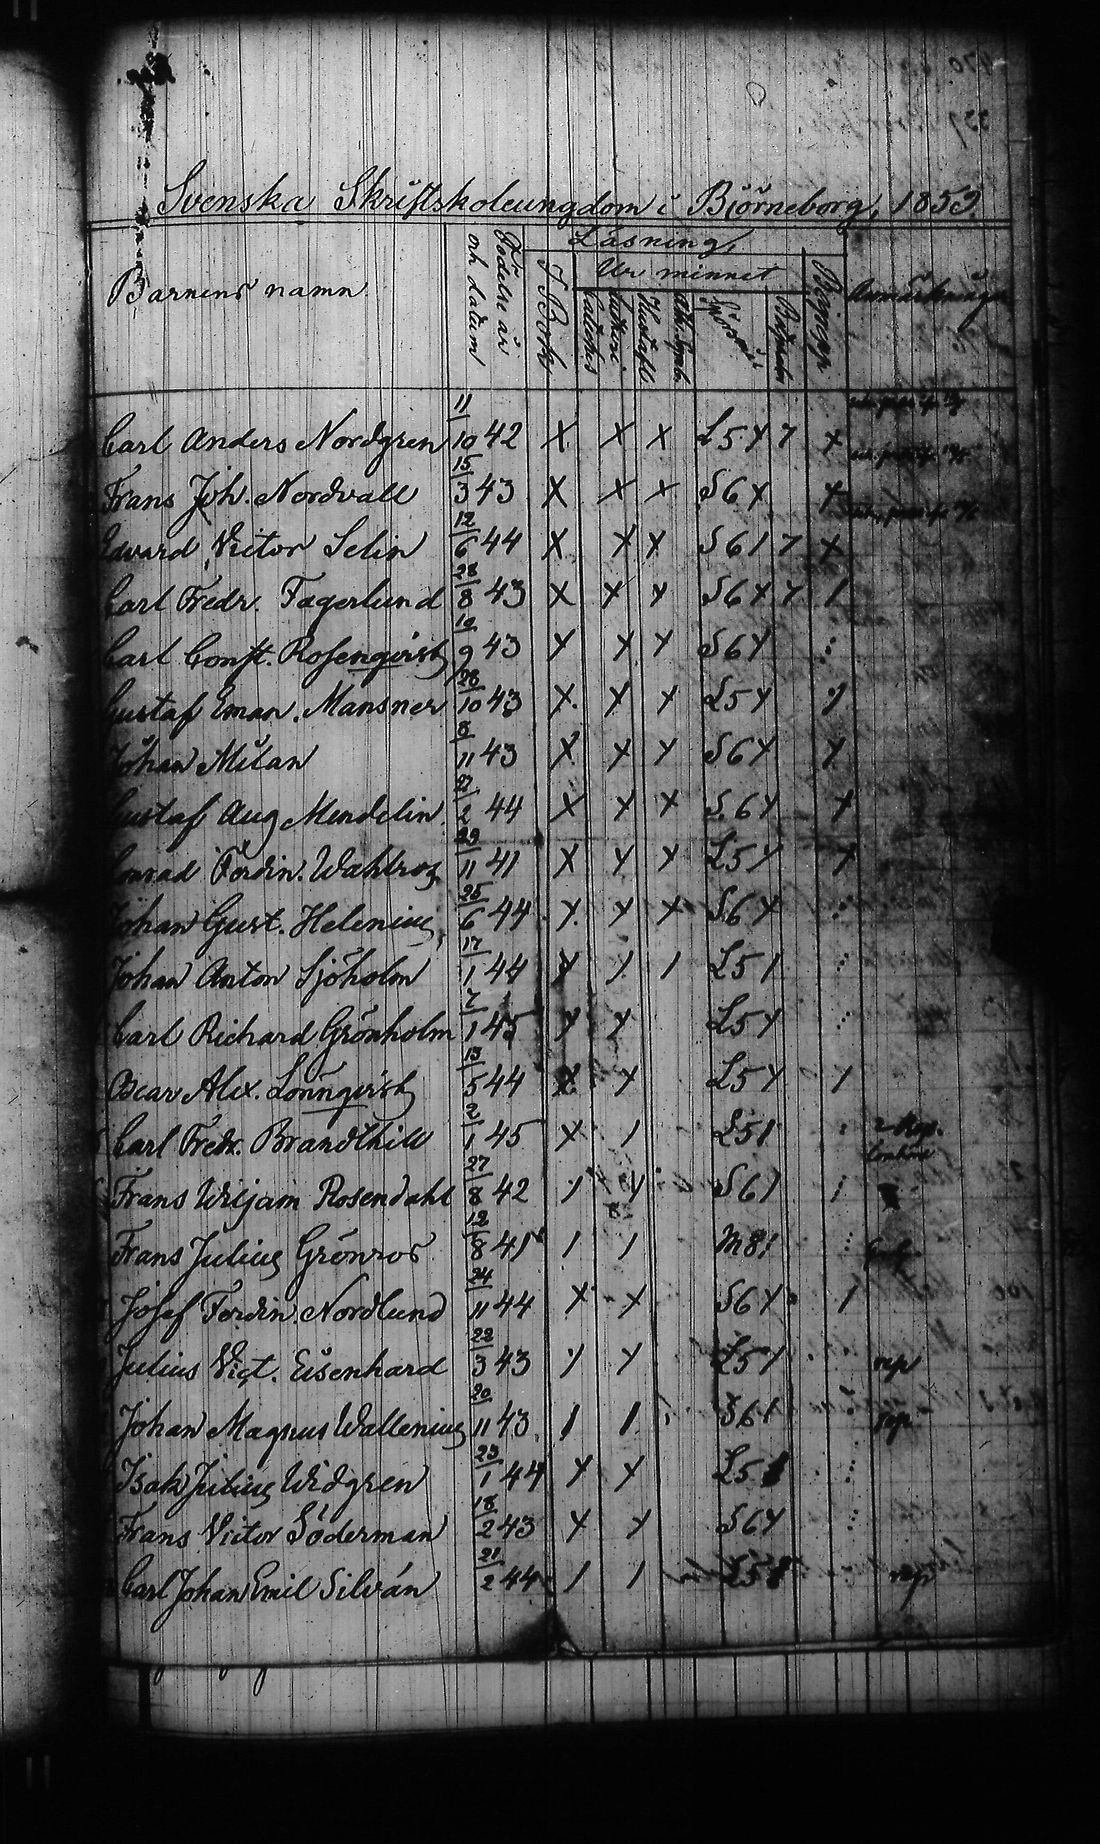 Svenska Skriftskoleungdom i Björneborg, 1859.
Barnens namn Födelse år och datum Läsning, Ur minnet I Bok Anmärkningar
Carl Anders Nordgren 11/10 42 X X X L 5 Y 7 X
Frans Joh. Nordvall 15/3 43 X X X S 6 Y X
Edvard Victor Selin 12/6 44 X X X S 6 1 7 X
Carl Fredr. Fagerlund 28/8 43 X X X S 6 X 7 1
Carl Const. Rosenqvist 19/9 43 X X X S 6 Y :
Gustaf Eman. Mansner 28/10 43 X X X L 5 Y
Johan Milan 8/11 43 X X X S 6 Y X
Gustaf Aug Mendelin 2 44 X X X S 6 Y X
Conrad Ferdin. Wahlroos 23/11 41 X X X L 5 Y X
Johan Gust. Helenius 25/6 44 X X X S 6 Y :
Johan Anton Sjöholm 17/1 44 X 1 1 L 5 1 :
Carl Richard Grönholm 7/1 45 X X L 5 Y :
Oscar Alex. Lönnqvist 13/5 44 X X L 5 Y 1
Carl Fredr. Brandthill 2/1 45 X 1 L 5 1 :
Frans Wiljam Rosendahl 27/8 42 1 X S 6 1 :
Frans Julius Grönros 12/8 41 1 1 M 8 1 :
Josef Ferdin. Nordlund 24/11 44 X X S 6 Y 1
Julius Vict. Eisenhard 22/3 43 X X L 5 Y rep
Johan Magnus Wallenius 20/11 43 1 1 S 6 1 rep
Isak Julius Widgren 23/1 44 X X L 5 :
Frans Victor Söderman 18/2 43 X X S 6 Y :
Carl Johan Emil Silván 21/2 44 1 1 L 5 rep